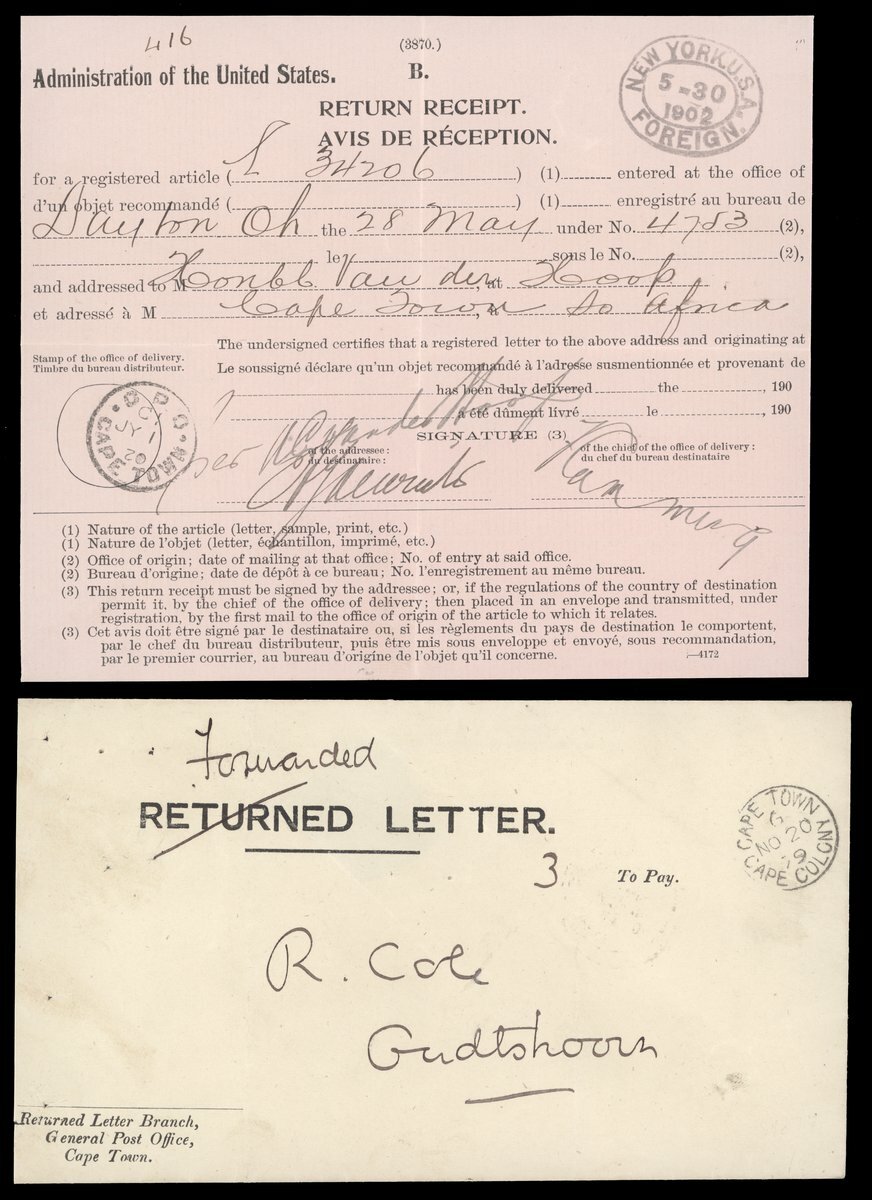 416
(3870.)
Administration of the United States. B.
NEW YORK, U.S.A.
5-30
1902
FOREIGN.
RETURN RECEIPT.
AVIS DE RÉCEPTION.
for a registered article ( L 34206 ) (1) entered at the office of
d'un objet recommandé ( ) (1) enregistré au bureau de
Dayton Oh the 28 May under No. 4783 (2),
le sous le No. (2),
and addressed to M Honbl Van der at Hoop
et adressé à M Cape Town, à So Africa
The undersigned certifies that a registered letter to the above address and originating at
Stamp of the office of delivery.
Timbre du bureau distributeur.
Le soussigné déclare qu'un objet recommandé à l'adresse susmentionnée et provenant de
has been duly delivered the , 190
a été dûment livré le , 190
G.P.O.
C
JY 1
CAPE TOWN
SIGNATURE (3)
of the addressee:
du destinataire:
of the chief of the office of delivery:
du chef du bureau destinataire
(1) Nature of the article (letter, sample, print, etc.)
(1) Nature de l'objet (letter, échantillon, imprimé, etc.)
(2) Office of origin; date of mailing at that office; No. of entry at said office.
(2) Bureau d'origine; date de dépôt à ce bureau; No. l'enregistrement au même bureau.
(3) This return receipt must be signed by the addressee; or, if the regulations of the country of destination
permit it, by the chief of the office of delivery; then placed in an envelope and transmitted, under
registration, by the first mail to the office of origin of the article to which it relates.
(3) Cet avis doit être signé par le destinataire ou, si les règlements du pays de destination le comportent,
par le chef du bureau distributeur, puis être mis sous enveloppe et envoyé, sous recommandation,
par le premier courrier, au bureau d'origine de l'objet qu'il concerne. —4172
Forwarded
RETURNED LETTER.
CAPE TOWN
NO 20
CAPE COLONY
3 To Pay.
R. Cole
Oudtshoorn
Returned Letter Branch,
General Post Office,
Cape Town.